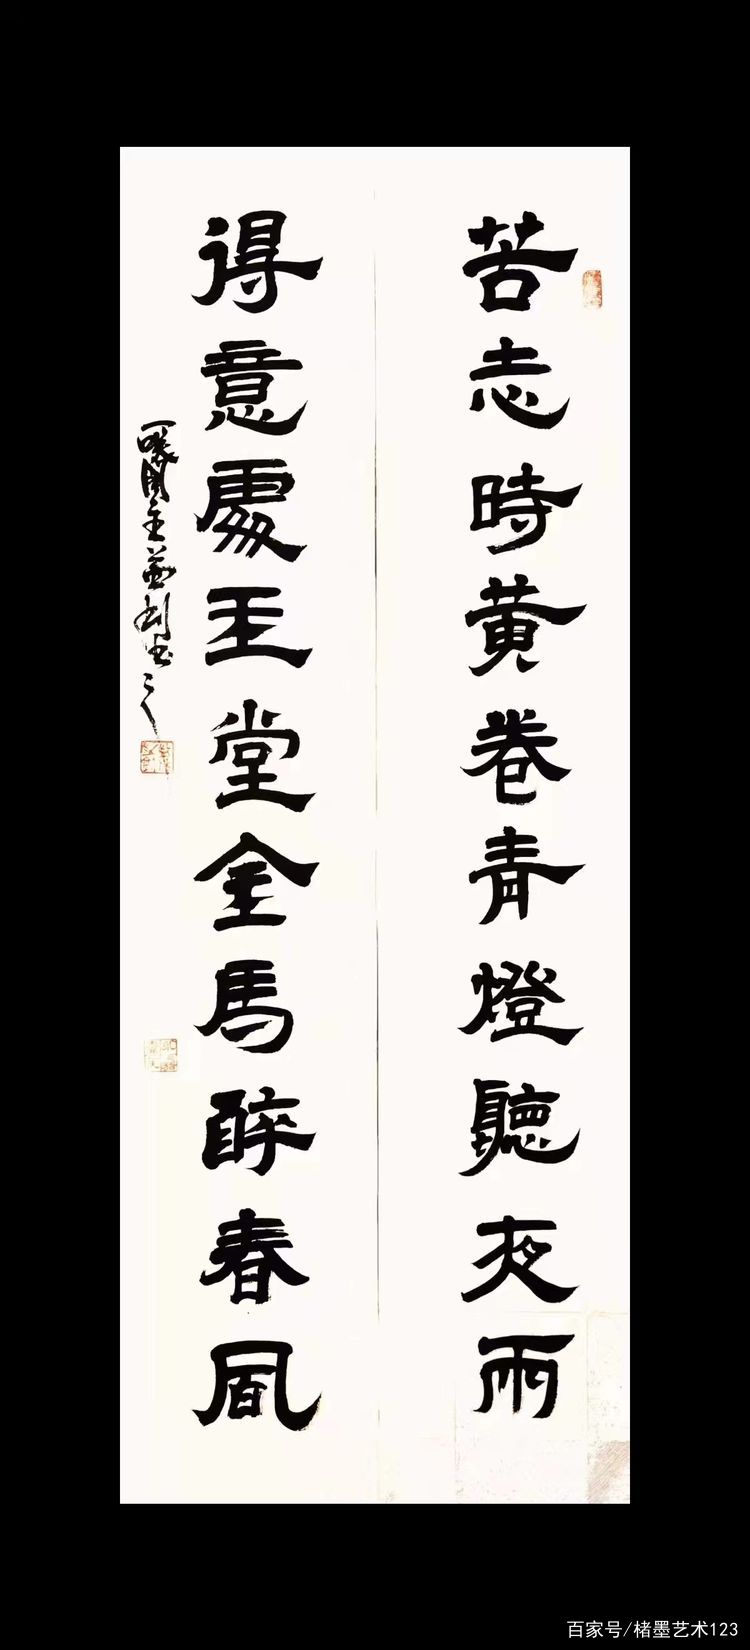 苦志時黄卷青燈聽夜雨
得意處玉堂金馬醉春風
百家号/楮墨艺术123